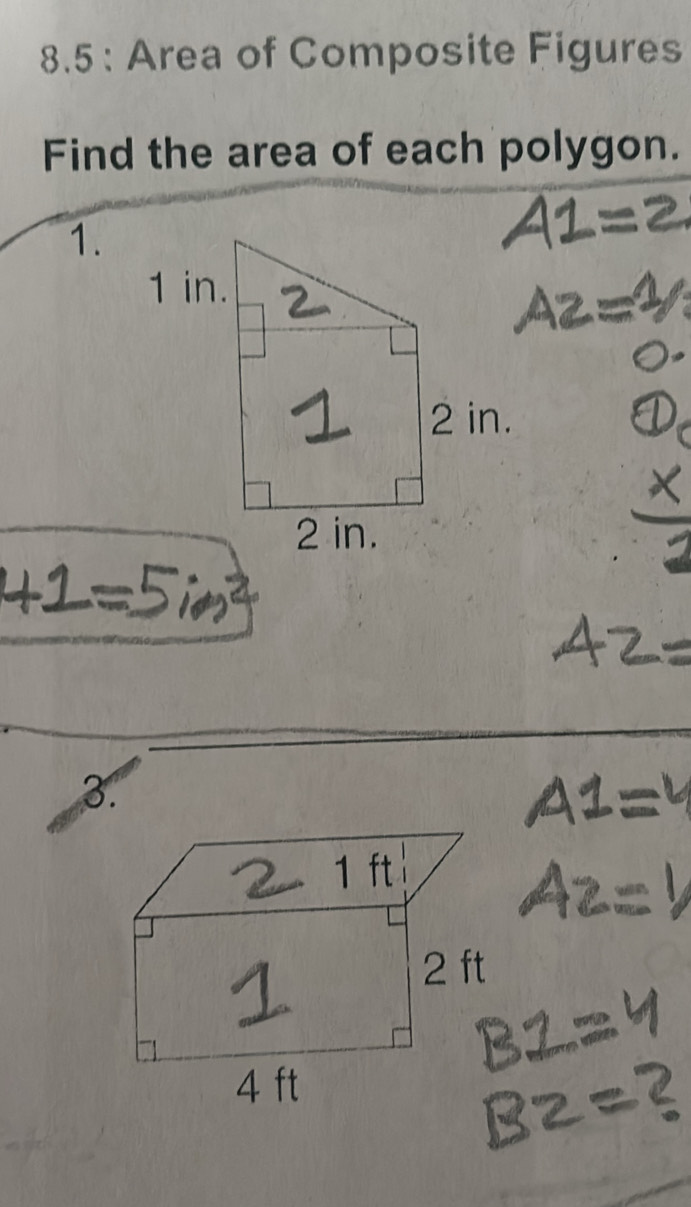 8.5: Area of Composite Figures
Find the area of each polygon.
A1=2
1.
1 in.
2
A2=1/
0.
1
2 in.
1
x
2 in.
+1=5in²
A2=
3.
A1=4
2
1 ft
A2=1/
1
2 ft
B1=4
4 ft
B2=?